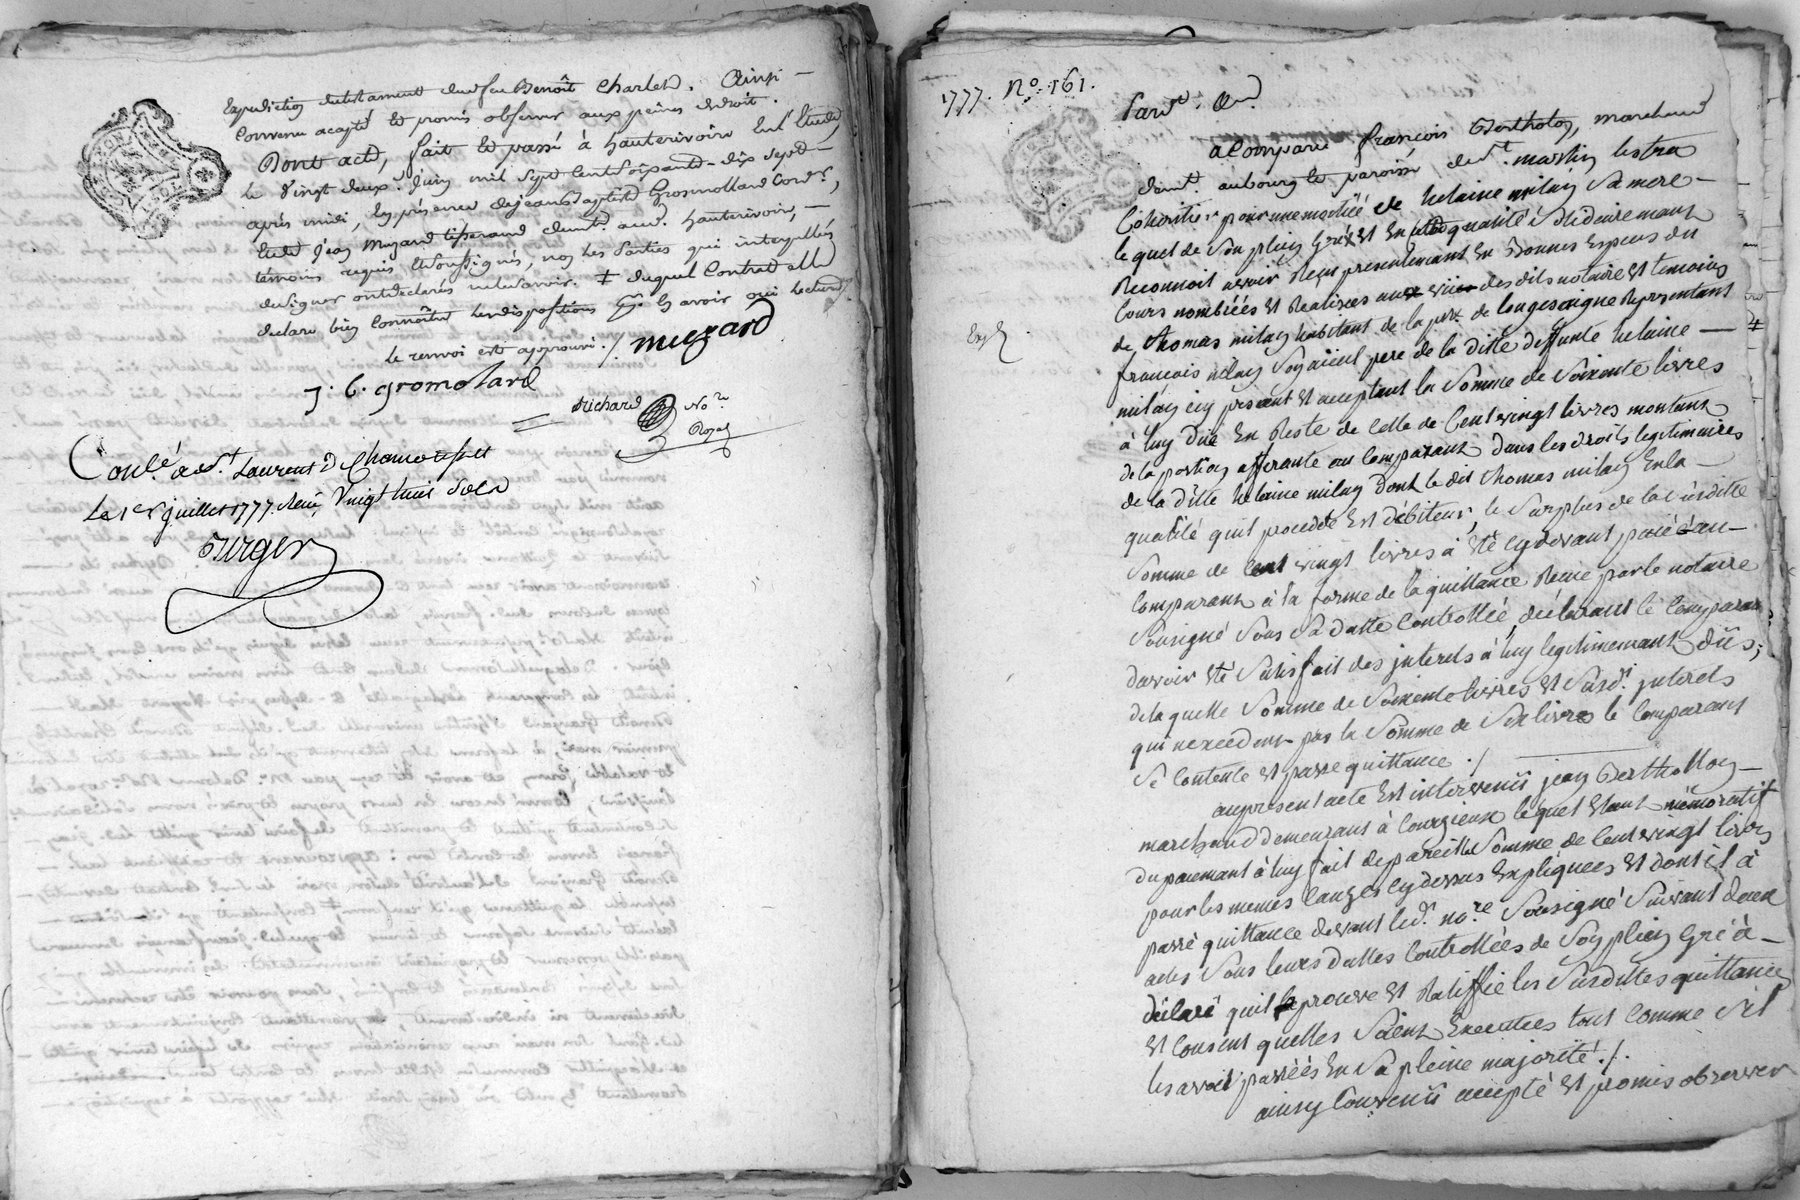 Expedition du testament dud. feu Benoît Charles. Ainsi
Convenu accepté et promis observer aux peines de droit.
Dont acte, fait et passé à hauterivoire En l'Etude,
le Vingt deux. Juin mil sept cent soixante-dix sept
après midi, En présence de jean Baptiste Grosmollard Cord.r,
Et de Jean Mugard tisserand demt. aud. hauterivoire,
témoins requis et soussignés, non les Parties qui interpellés
de signer ont declarés ne le savoir. ‡ duquel Contrat elle
declare bien Connoître les dispositions pr. En avoir oui lecture
le renvoi est approuvé. /
mugard
J. C. gromolard
Richard No.re
Royal
Conlé. a St. Laurent d Chamousset
Le 1er juillet 1777. Reçu Vingt huit sols
Surger
1777. No. 161.
Pard.t &a.
a Comparu françois Bertholon, marchand
demt. au bourg et paroisse de St. martin lestra
Cohéritier pour une moitiéé de helaine milan Sa mere
lequel de Son plein gré et En cette qualité Solidairemant
Reconnoit avoir Reçu presentemant En Bonnes Especes du
Cours nombréés et Realisees aux vüe des dits notaire et temoins
de thomas milan habitant de la psse. de longesaigne Representant
francois milan Son aïeul pere de la ditte deffunte helaine
milan icy present et acceptant la Somme de Soixente livres
à luy düe En Reste de celle de Cent vingt livres montant
de la portion afferante au Comparant dans les droits legitimaires
de la ditte helaine milan dont le dit thomas milan En la
qualité quil procedde Est débiteur, le Surplus de la Susditte
Somme de Cent vingt livres à été cy devant paié au
Comparant à la forme de la quittance Reçue par le notaire
Sousigné Sous Sa datte Controlléé, déclarant le Comparant
davoir été Satisfait des jnterets à luy legitimemant düs;
de la quelle Somme de Soixente livres et Susd. jnterets
qui n'excedent pas la Somme de Six livres le Comparant
Se Contente et passe quittance. /
au present acte Est intervenu jean Berthollon
marchand demeurant à Courzieux lequel étant mémoratif
du paiemant à luy fait de pareille Somme de Cent vingt livres
pour les memes Causes cy dessus Expliquees et dont il à
passé quittance devant led. no.re Sousigné Suivant deux
actes Sous leurs dattes Controllées de Son plein Gré à
déclaré quil aprouve et Ratiffie les Susdittes quittances
et Consent quelles Saient Executées tout Comme Sil
les avoit passéés En Sa pleine majorité. /.
ainsy Convenü accepté et promis observer